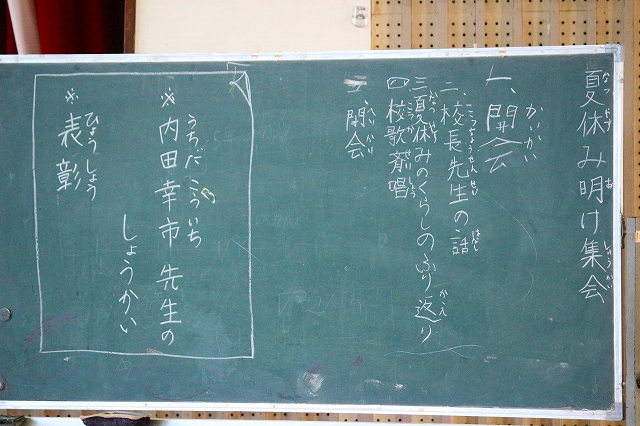 夏休み明け集会
一、開会
二、校長先生の話
三夏休みのくらしのふり返り
四校歌斉唱
五閉会
※内田幸市先生の
しょうかい
※表彰